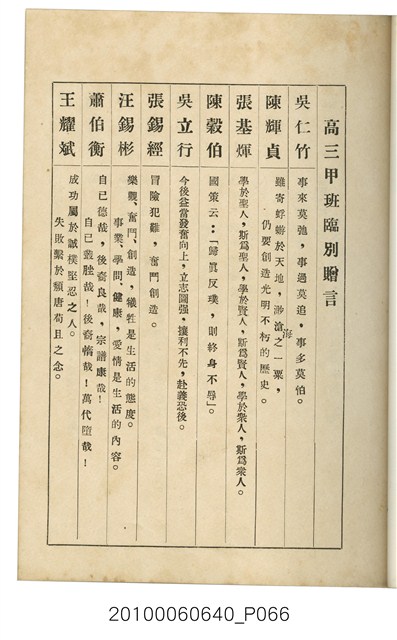 高三甲班臨別贈言
吳仁竹
事來莫弛，事過莫追，事多莫怕。
陳輝貞
雖寄蜉蝣於天地，渺滄海之一粟，
仍要創造光明不朽的歷史。
張基煇
學於聖人，斯為聖人，學於賢人，斯為賢人，學於衆人，斯為衆人。
陳穀伯
國策云：「歸眞反璞，則終身不辱」。
吳立行
今後益當發奮向上，立志圖强，攘利不先，赴義恐後。
張錫經
冒險犯難，奮鬥創造。
汪錫彬
樂觀、奮鬥、創造，犧牲是生活的態度。
事業、學問、健康，愛情是生活的內容。
蕭伯衡
自己德哉，後裔良哉，宗譜康哉！
自己叢脞哉！後裔惰哉！萬代墮哉！
王耀斌
成功屬於誠樸堅忍之人。
失敗繫於頹唐苟且之念。
20100060640_P066